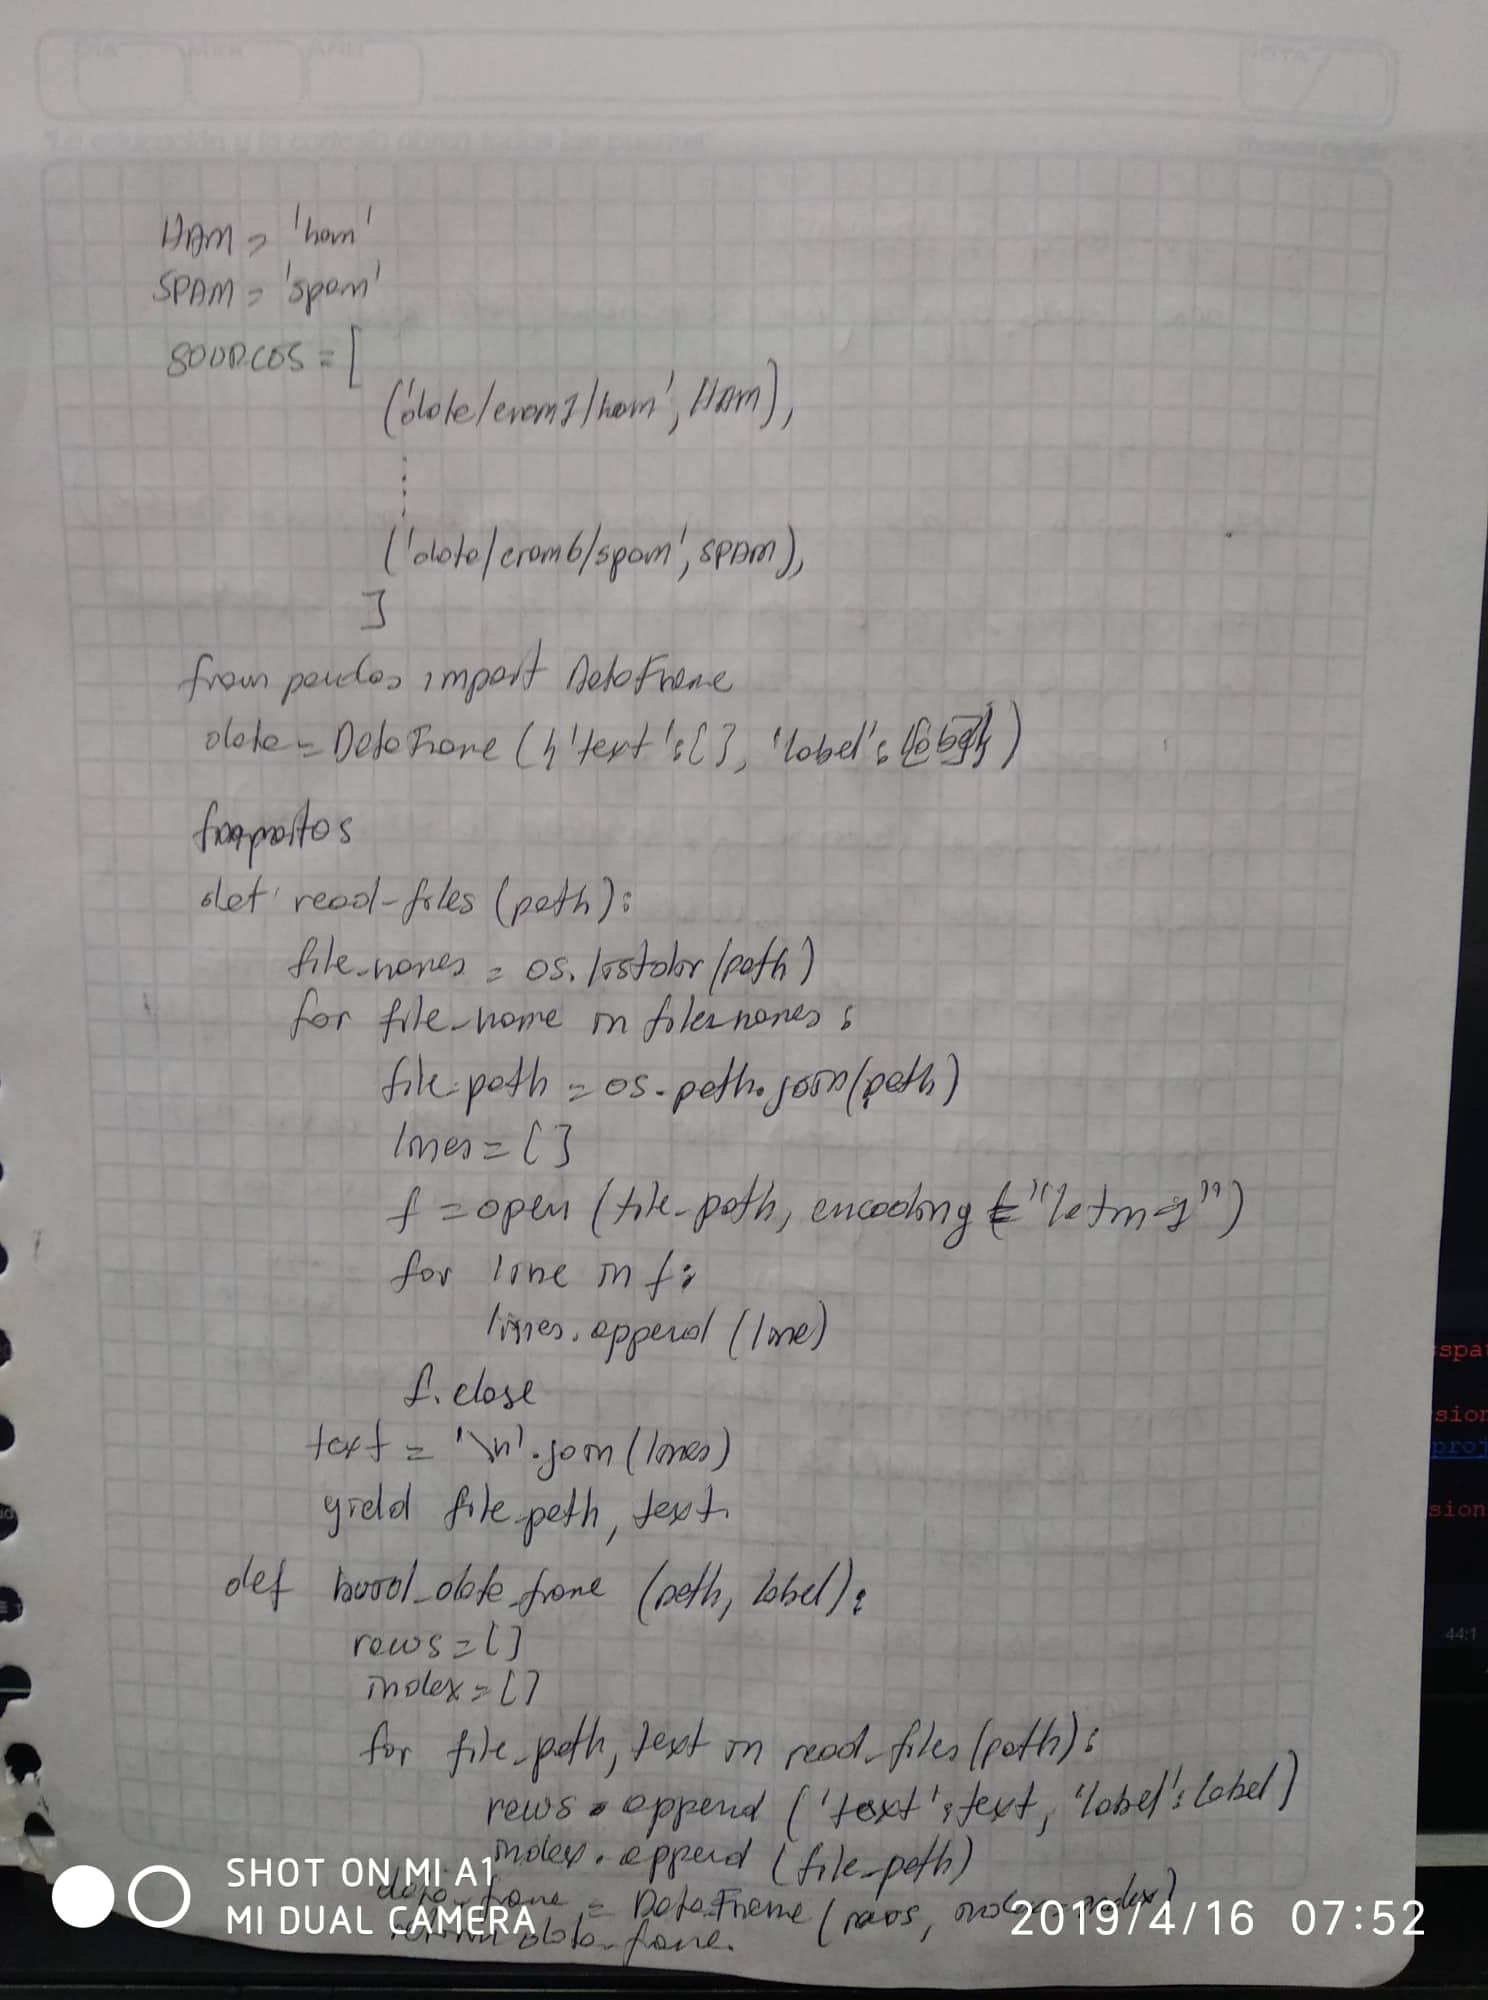 DIA MES AÑO NOTA
"La educación y la cortesía abren todas las puertas"
HAM = 'ham'
SPAM = 'spam'
SOURCES = [
('data/enron1/ham', HAM),
⋮
('data/enron6/spam', SPAM),
]
from pandas import DataFrame
data = DataFrame ({'text':[], 'label':[]})
import os
def read-files (path):
file_names = os.listdir (path)
for file_name in file_names:
file_path = os.path.join (path)
lines = []
f = open (file_path, encoding = "latin-1")
for line in f:
lines.append (line)
f.close
text = '\n'.join (lines)
yield file_path, text
def build_data_frame (path, label):
rows = []
index = []
for file_path, text in read_files (path):
rows.append ('text': text, 'label': label)
index.append (file_path)
data_frame = DataFrame (rows, index = index)
return data_frame.
SHOT ON MI A1
MI DUAL CAMERA
2019/4/16 07:52
sion
proj
sion
44:1